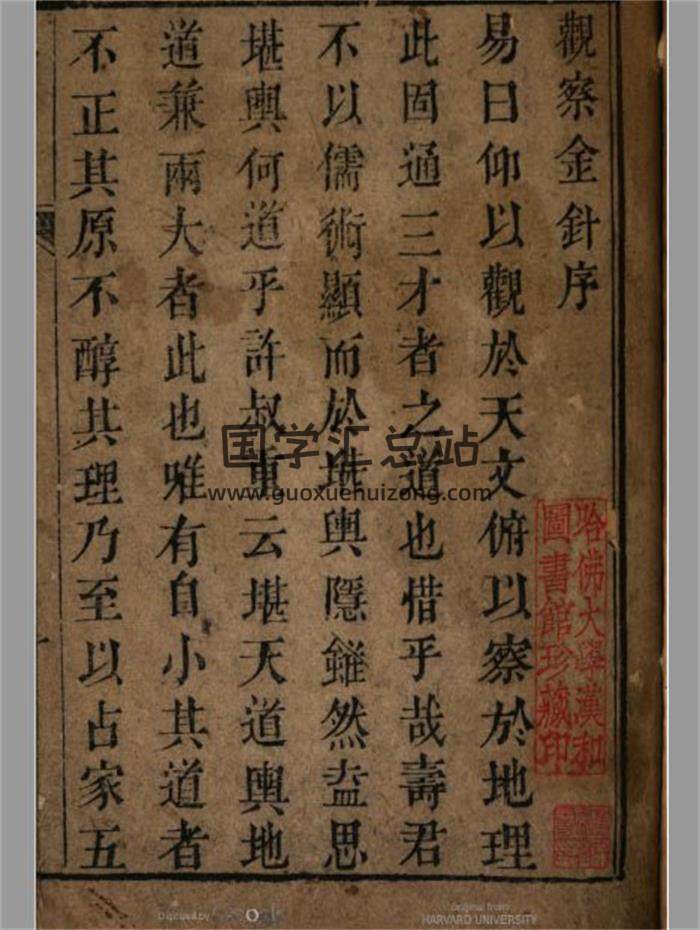 觀察金針序
易曰仰以觀於天文俯以察於地理
此固通三才者之道也惜乎哉壽君
不以儒術顯而於堪輿隱雖然盍思
堪輿何道乎許叔重云堪天道輿地
道兼兩大者此也唯有自小其道者
不正其原不醇其理乃至以占家五
哈佛大學漢和
圖書館珍藏印
国学汇总站
www.guoxuehuizong.com
Digitized by Google
Original from
HARVARD UNIVERSITY